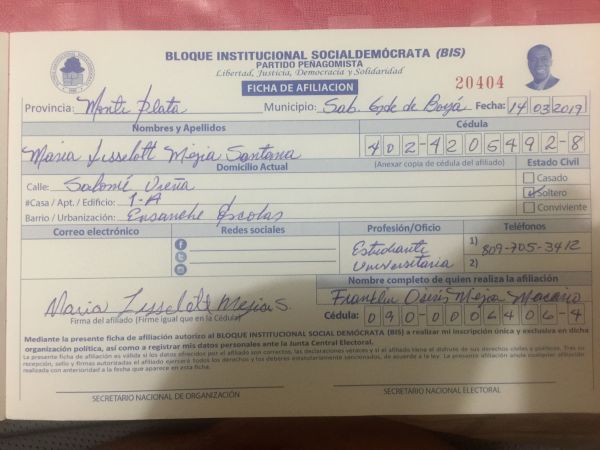 BLOQUE INSTITUCIONAL SOCIALDEMÓCRATA (BIS)
PARTIDO PEÑAGOMISTA
Libertad, Justicia, Democracia y Solidaridad
FICHA DE AFILIACION
20404
Provincia: Monte Plata Municipio: Sab. Gde de Boyá Fecha: 14 03 2019
Nombres y Apellidos Cédula
Maria Lisselott Mejia Santana 402-4205492-8
Domicilio Actual (Anexar copia de cédula del afiliado) Estado Civil
Calle: Salomé Ureña
Casado
#Casa / Apt. / Edificio: 1-A
Soltero
Barrio / Urbanización: Ensanche Escolas
Conviviente
Correo electrónico Redes sociales Profesión/Oficio Teléfonos
Estudiante 1) 809-705-3412
Universitaria 2)
Nombre completo de quien realiza la afiliación
Maria Lisselott Mejia S. Franklin Osiris Mejia Macario
Firma del afiliado (Firme igual que en la Cédula) Cédula: 090-0006406-4
Mediante la presente ficha de afiliación autorizo al BLOQUE INSTITUCIONAL SOCIAL DEMÓCRATA (BIS) a realizar mi inscripción única y exclusiva en dicha
organización política, así como a registrar mis datos personales ante la Junta Central Electoral.
La presente ficha de afiliación es válida si los datos ofrecidos por el afiliado son correctos, las declaraciones veraces y si el afiliado tiene el disfrute de sus derechos civiles y políticos. Tras su
recepción, sello y firmas autorizadas el afiliado ejercerá todos los derechos y los deberes estatutariamente sancionados, de acuerdo a la ley. La presente afiliación anula cualquier afiliación
realizada con anterioridad a la fecha que aparece en esta ficha.
SECRETARIO NACIONAL DE ORGANIZACIÓN SECRETARIO NACIONAL ELECTORAL